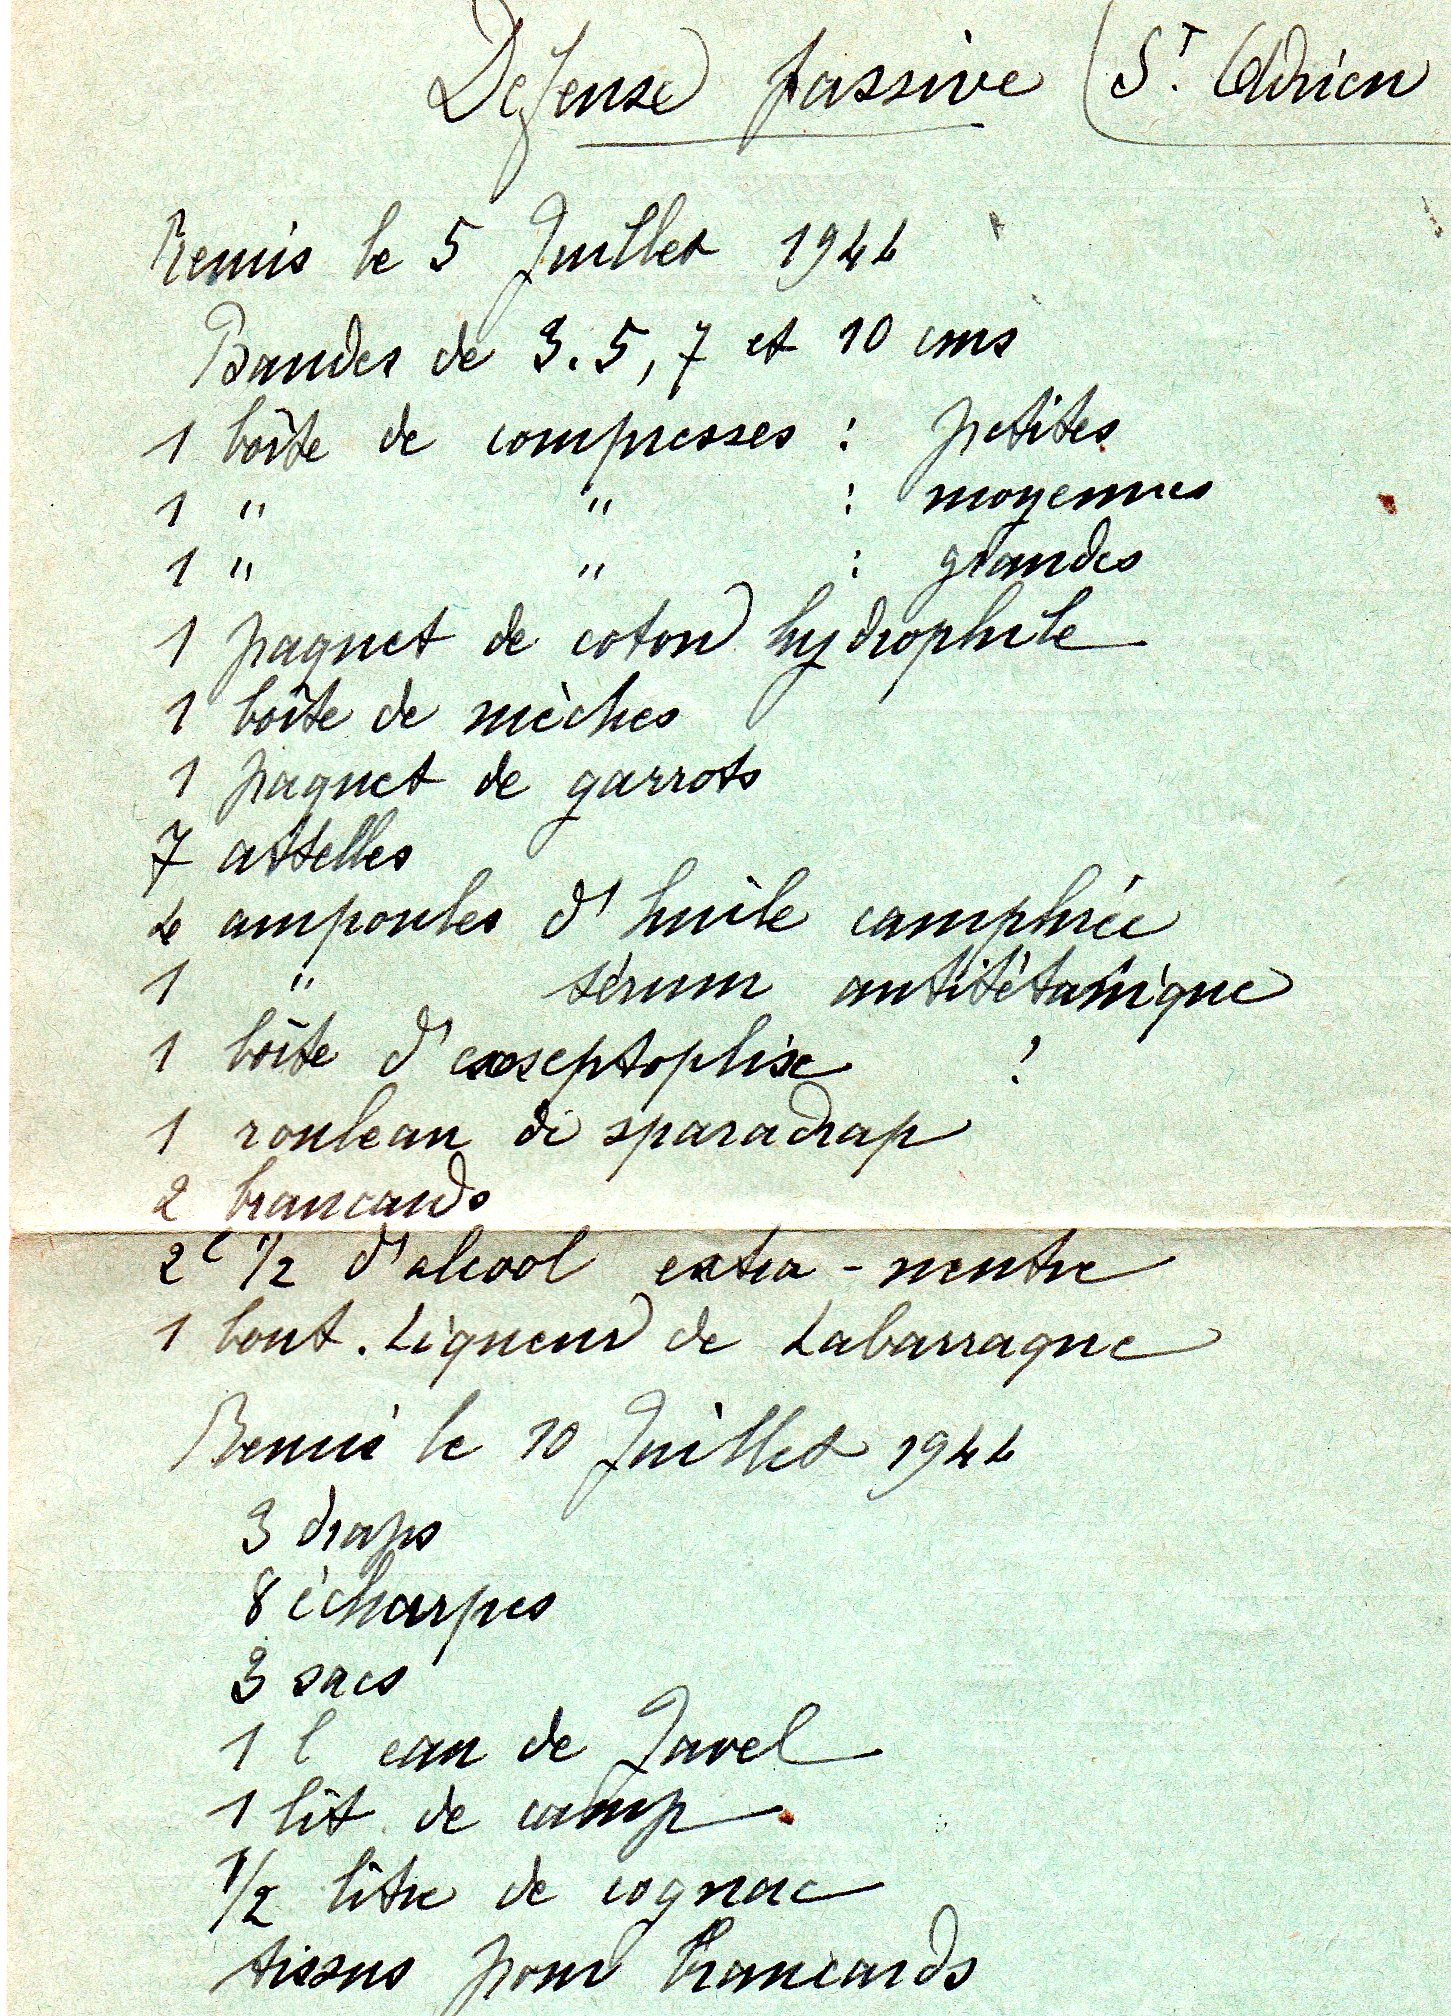 Défense passive (St. Adrien
Remis le 5 Juillet 1944
Bandes de 3.5, 7 et 10 cms
1 boîte de compresses : petites
1 " " : moyennes
1 " " : grandes
1 paquet de coton hydrophile
1 boîte de mèches
1 paquet de garrots
7 attelles
4 ampoules d'huile camphrée
1 " sérum antitétanique
1 boîte d'exoseptoplix !
1 rouleau de sparadrap
2 brancards
2l 1/2 d'alcool extra-neutre
1 bout. Liqueur de Labarraque
Remis le 10 Juillet 1944
3 draps
8 écharpes
3 sacs
1 l eau de Javel
1 lit de camp
1/2 litre de cognac
tissus pour brancards